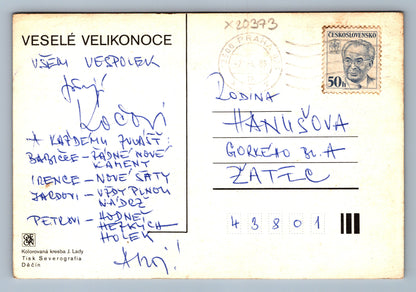 X20373
VESELÉ VELIKONOCE
VŠEM VESPOLEK
přejí
Kočoví
A KAŽDÉMU ZVLÁŠŤ:
BABIČCE – ŽÁDNÉ NOVÉ
KAMENY
IRENCE – NOVÉ ŠATY
JARDOVI – VŽDY PLNOU
NÁDRŽ
PETROVI – HODNĚ
HEZKÝCH
HOLEK
Ahoj!
Kolorovaná kresba J. Lady
Tisk Severografia
Děčín
PRAHA
ČESKOSLOVENSKO
50h
RODINA
HANUŠOVA
GORKÉHO BL. A
ŽATEC
43801